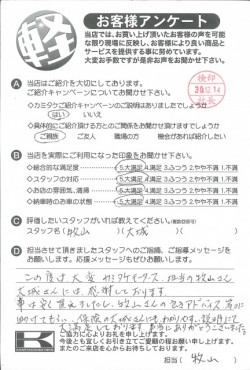 軽
お客様アンケート
当店では、お買い上げ頂いたお客様の声を可能
な限り現場に反映し、お客様により良い商品と
サービスを提供する事に努めています。
大変お手数ですが是非お声をお聞かせ下さい。
検印
30.12.14
社長
A 当店はご紹介を大切にしております。
ご紹介キャンペーンについてお聞かせ下さい。
◇カミタケご紹介キャンペーンのご説明はありましたでしょうか
はい いいえ
◇具体的にご紹介頂ける方との関係をお聞かせ頂けますでしょうか
ご親族 ご友人 職場の方 機会があれば紹介したい
B 当店を実際にご利用になった印象をお聞かせ下さい。
◇総合的な満足度 5.大満足 4.満足 3.ふつう 2.やや不満 1.不満
◇スタッフの対応 5.大満足 4.満足 3.ふつう 2.やや不満 1.不満
◇お店の雰囲気、清潔 5.大満足 4.満足 3.ふつう 2.やや不満 1.不満
◇納車時のお車の状態 5.大満足 4.満足 3.ふつう 2.やや不満 1.不満
C 評価したいスタッフがいれば教えてください。(複数回答可)
スタッフ名( 牧山 )( 大城 )
D 担当させて頂きましたスタッフへのご指摘、ご指導メッセージを
お願いします。応援メッセージもぜひお願いします!
この度は大変
担当の牧山さん
大城さんには感謝しております。
車は
牧山さんの
アドバイス
助けてもらい、保険の大城さんにもわかりやすい説明にて
大満足しております 本当にありがとうございました。
ご協力に心からお礼を申し上げます。
今後とも宜しくお引き立てご愛顧の程お願い申し上げます。
またのご来店を心からお待ちしております。
担当( 牧山 )